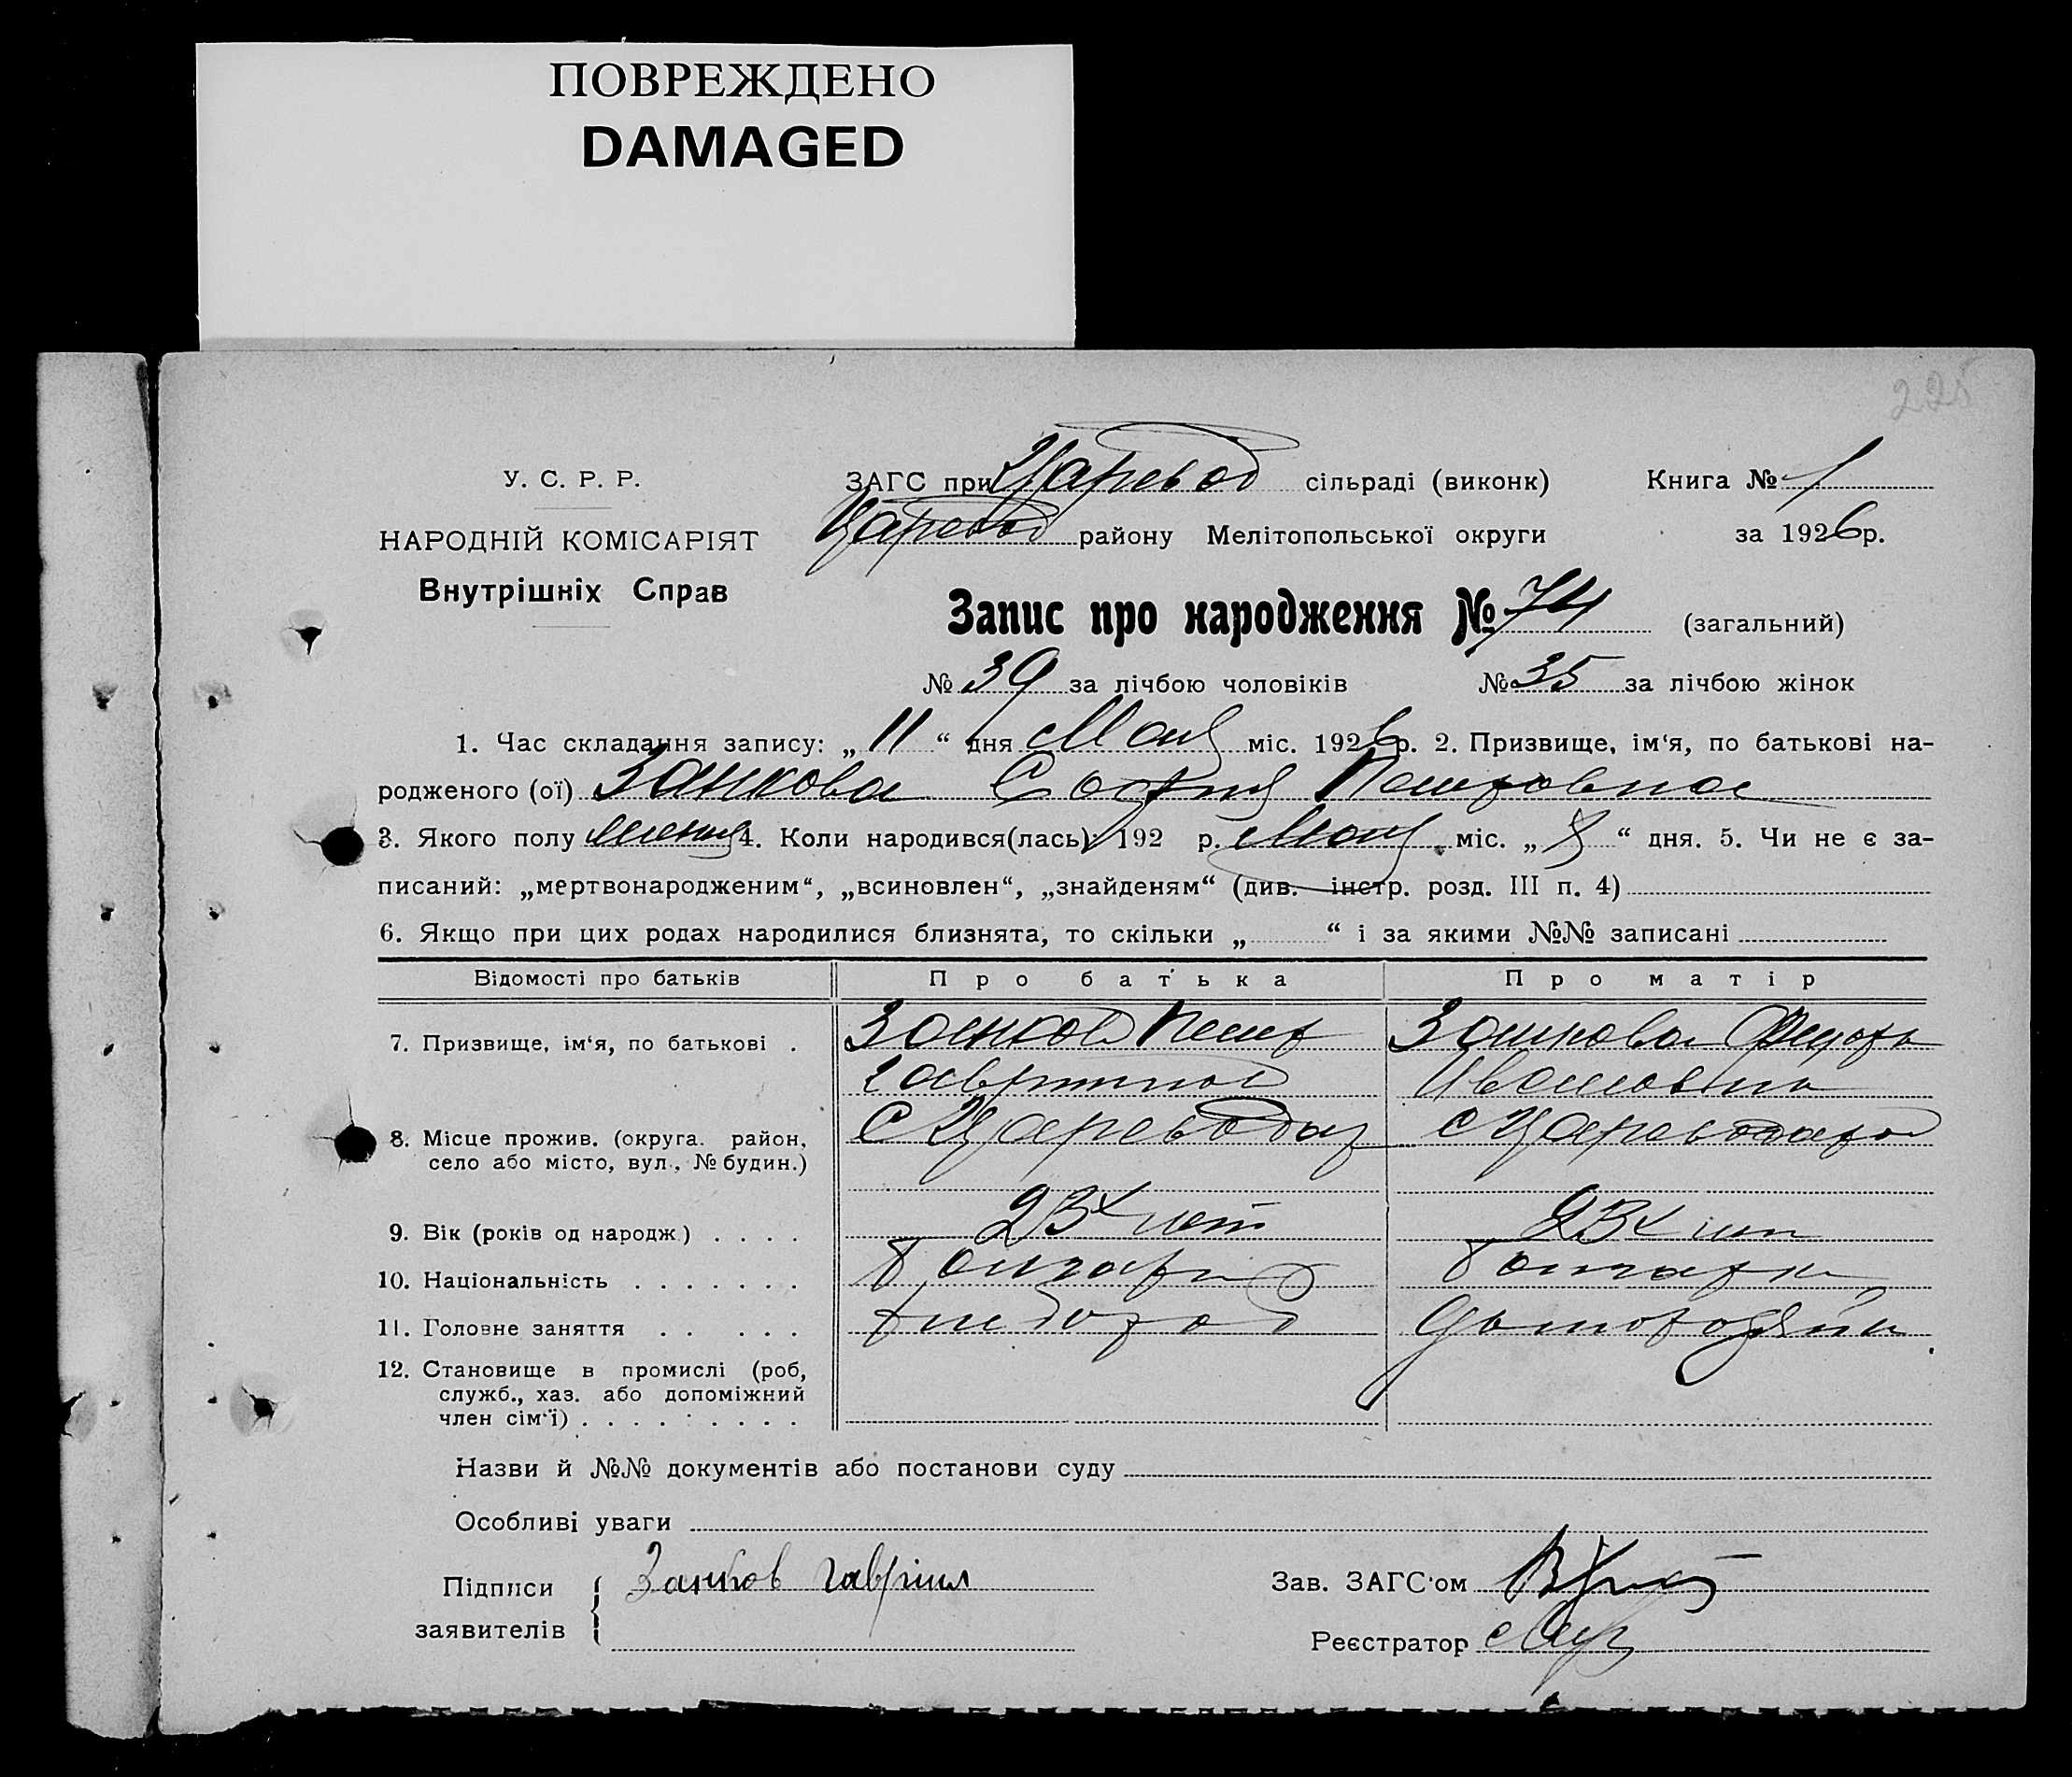 ПОВРЕЖДЕНО
DAMAGED
225
У. С. Р. Р.
НАРОДНІЙ КОМІСАРІЯТ
Внутрішніх Справ
ЗАГС при Царевод сільраді (виконк) Книга № 1
Царевод району Мелітопольської округи за 1926 р.
Запис про народження № 74 (загальний)
№ 39 за лічбою чоловіків № 35 за лічбою жінок
1. Час складання запису: „11“ дня Мая міс. 1926 р. 2. Призвище, ім‘я, по батькові на-
родженого (ої) Занкова София Петровна
3. Якого полу 4. Коли народився(лась) 192 р. Мая міс. „8“ дня. 5. Чи не є за-
писаний: „мертвонародженим“, „всиновлен“, „знайденям“ (див. інстр. розд. III п. 4)
6. Якщо при цих родах народилися близнята, то скільки „ “ і за якими №№ записані
Відомості про батьків Про батька Про матір
7. Призвище, ім‘я, по батькові . Занков Петр Занкова
Ивановна
8. Місце прожив. (округа. район, с Цареводар с Цареводар
село або місто, вул., № будин.)
9. Вік (років од народж.) . . . . 23 лет 23 лет
10. Національність . . . . . . . Болгарин Болгарка
11. Головне заняття . . . . . хлебороб домохозяйка
12. Становище в промислі (роб,
служб., хаз. або допоміжний
член сім‘ї) . . . . . . . . .
Назви й №№ документів або постанови суду
Особливі уваги
Підписи Занков Гавриил Зав. ЗАГС‘ом
заявителів Реєстратор